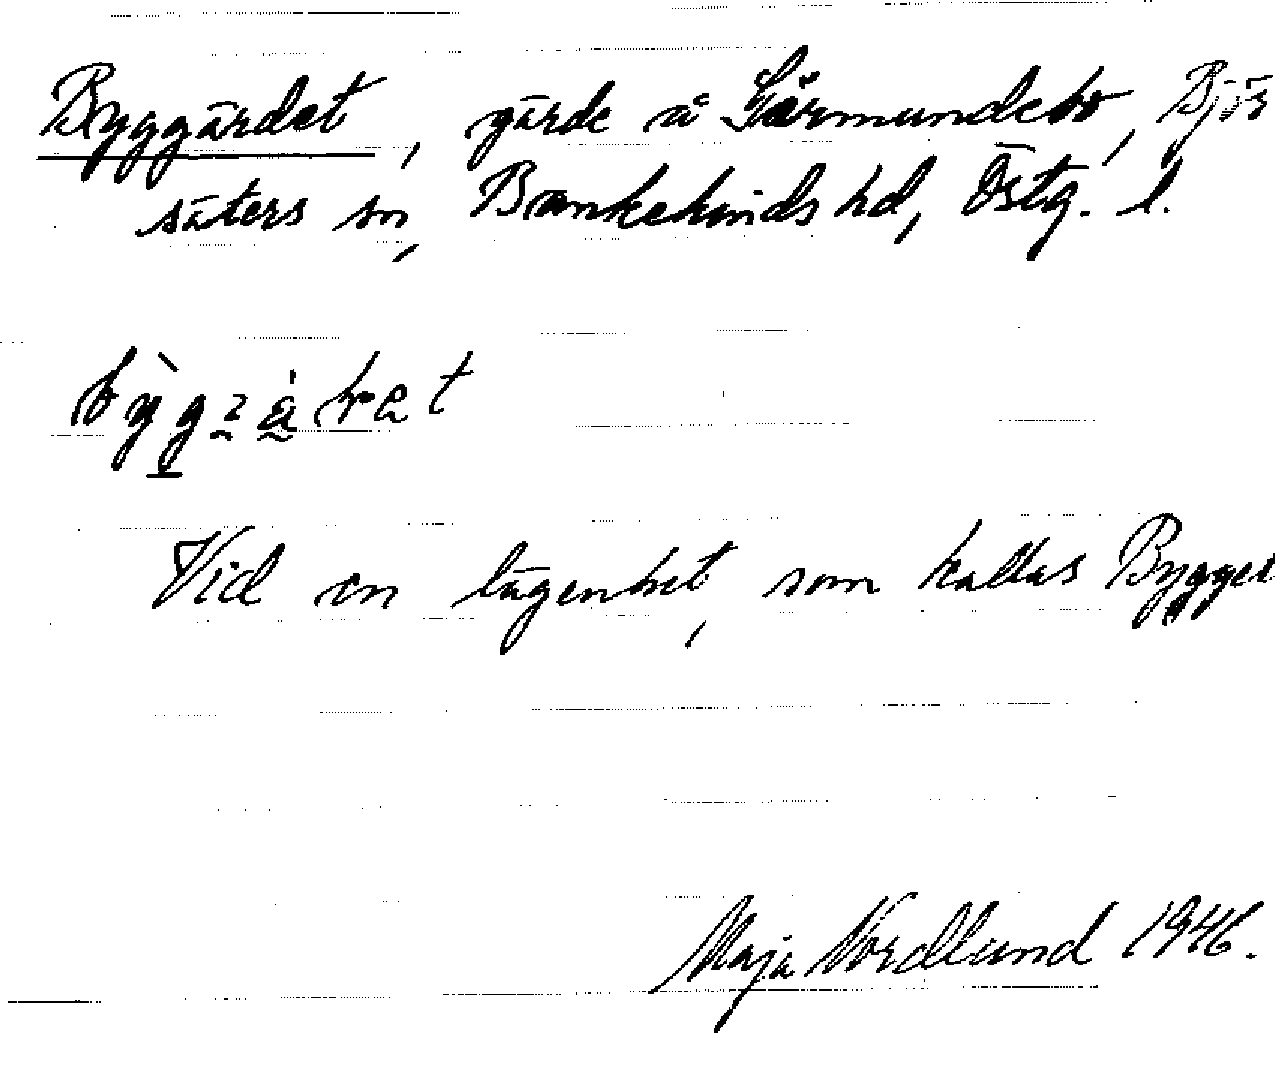 Byggärdet, gärde å Gärmundebo, Bjär
säters sn, Bankekinds hd, Östg. l.
Vid en lägenhet, som kallas Bygget
Maja Nordlund 1946.